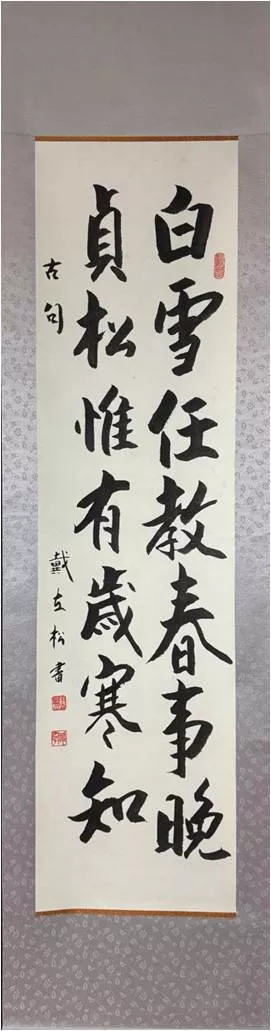 白雪任教春事晚
貞松惟有歲寒知
古句
戴立松書